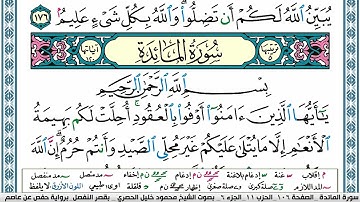 يُبَيِّنُ ٱللَّهُ لَكُمْ أَن تَضِلُّوا۟ وَٱللَّهُ بِكُلِّ شَىْءٍ عَلِيمٌۢ ١٧٦
سُورَةُ المَائدَةِ
بِسْمِ ٱللَّهِ ٱلرَّحْمَـٰنِ ٱلرَّحِيمِ
يَـٰٓأَيُّهَا ٱلَّذِينَ ءَامَنُوٓا۟ أَوْفُوا۟ بِٱلْعُقُودِ أُحِلَّتْ لَكُم بَهِيمَةُ
ٱلْأَنْعَـٰمِ إِلَّا مَا يُتْلَىٰ عَلَيْكُمْ غَيْرَ مُحِلِّى ٱلصَّيْدِ وَأَنتُمْ حُرُمٌ إِنَّ ٱللَّهَ
سورة المائدة، الصفحة ١٠٦ الحزب ١١ الجزء ٦ بصوت الشيخ محمود خليل الحصري بقصر المنفصل برواية حفص عن عاصم